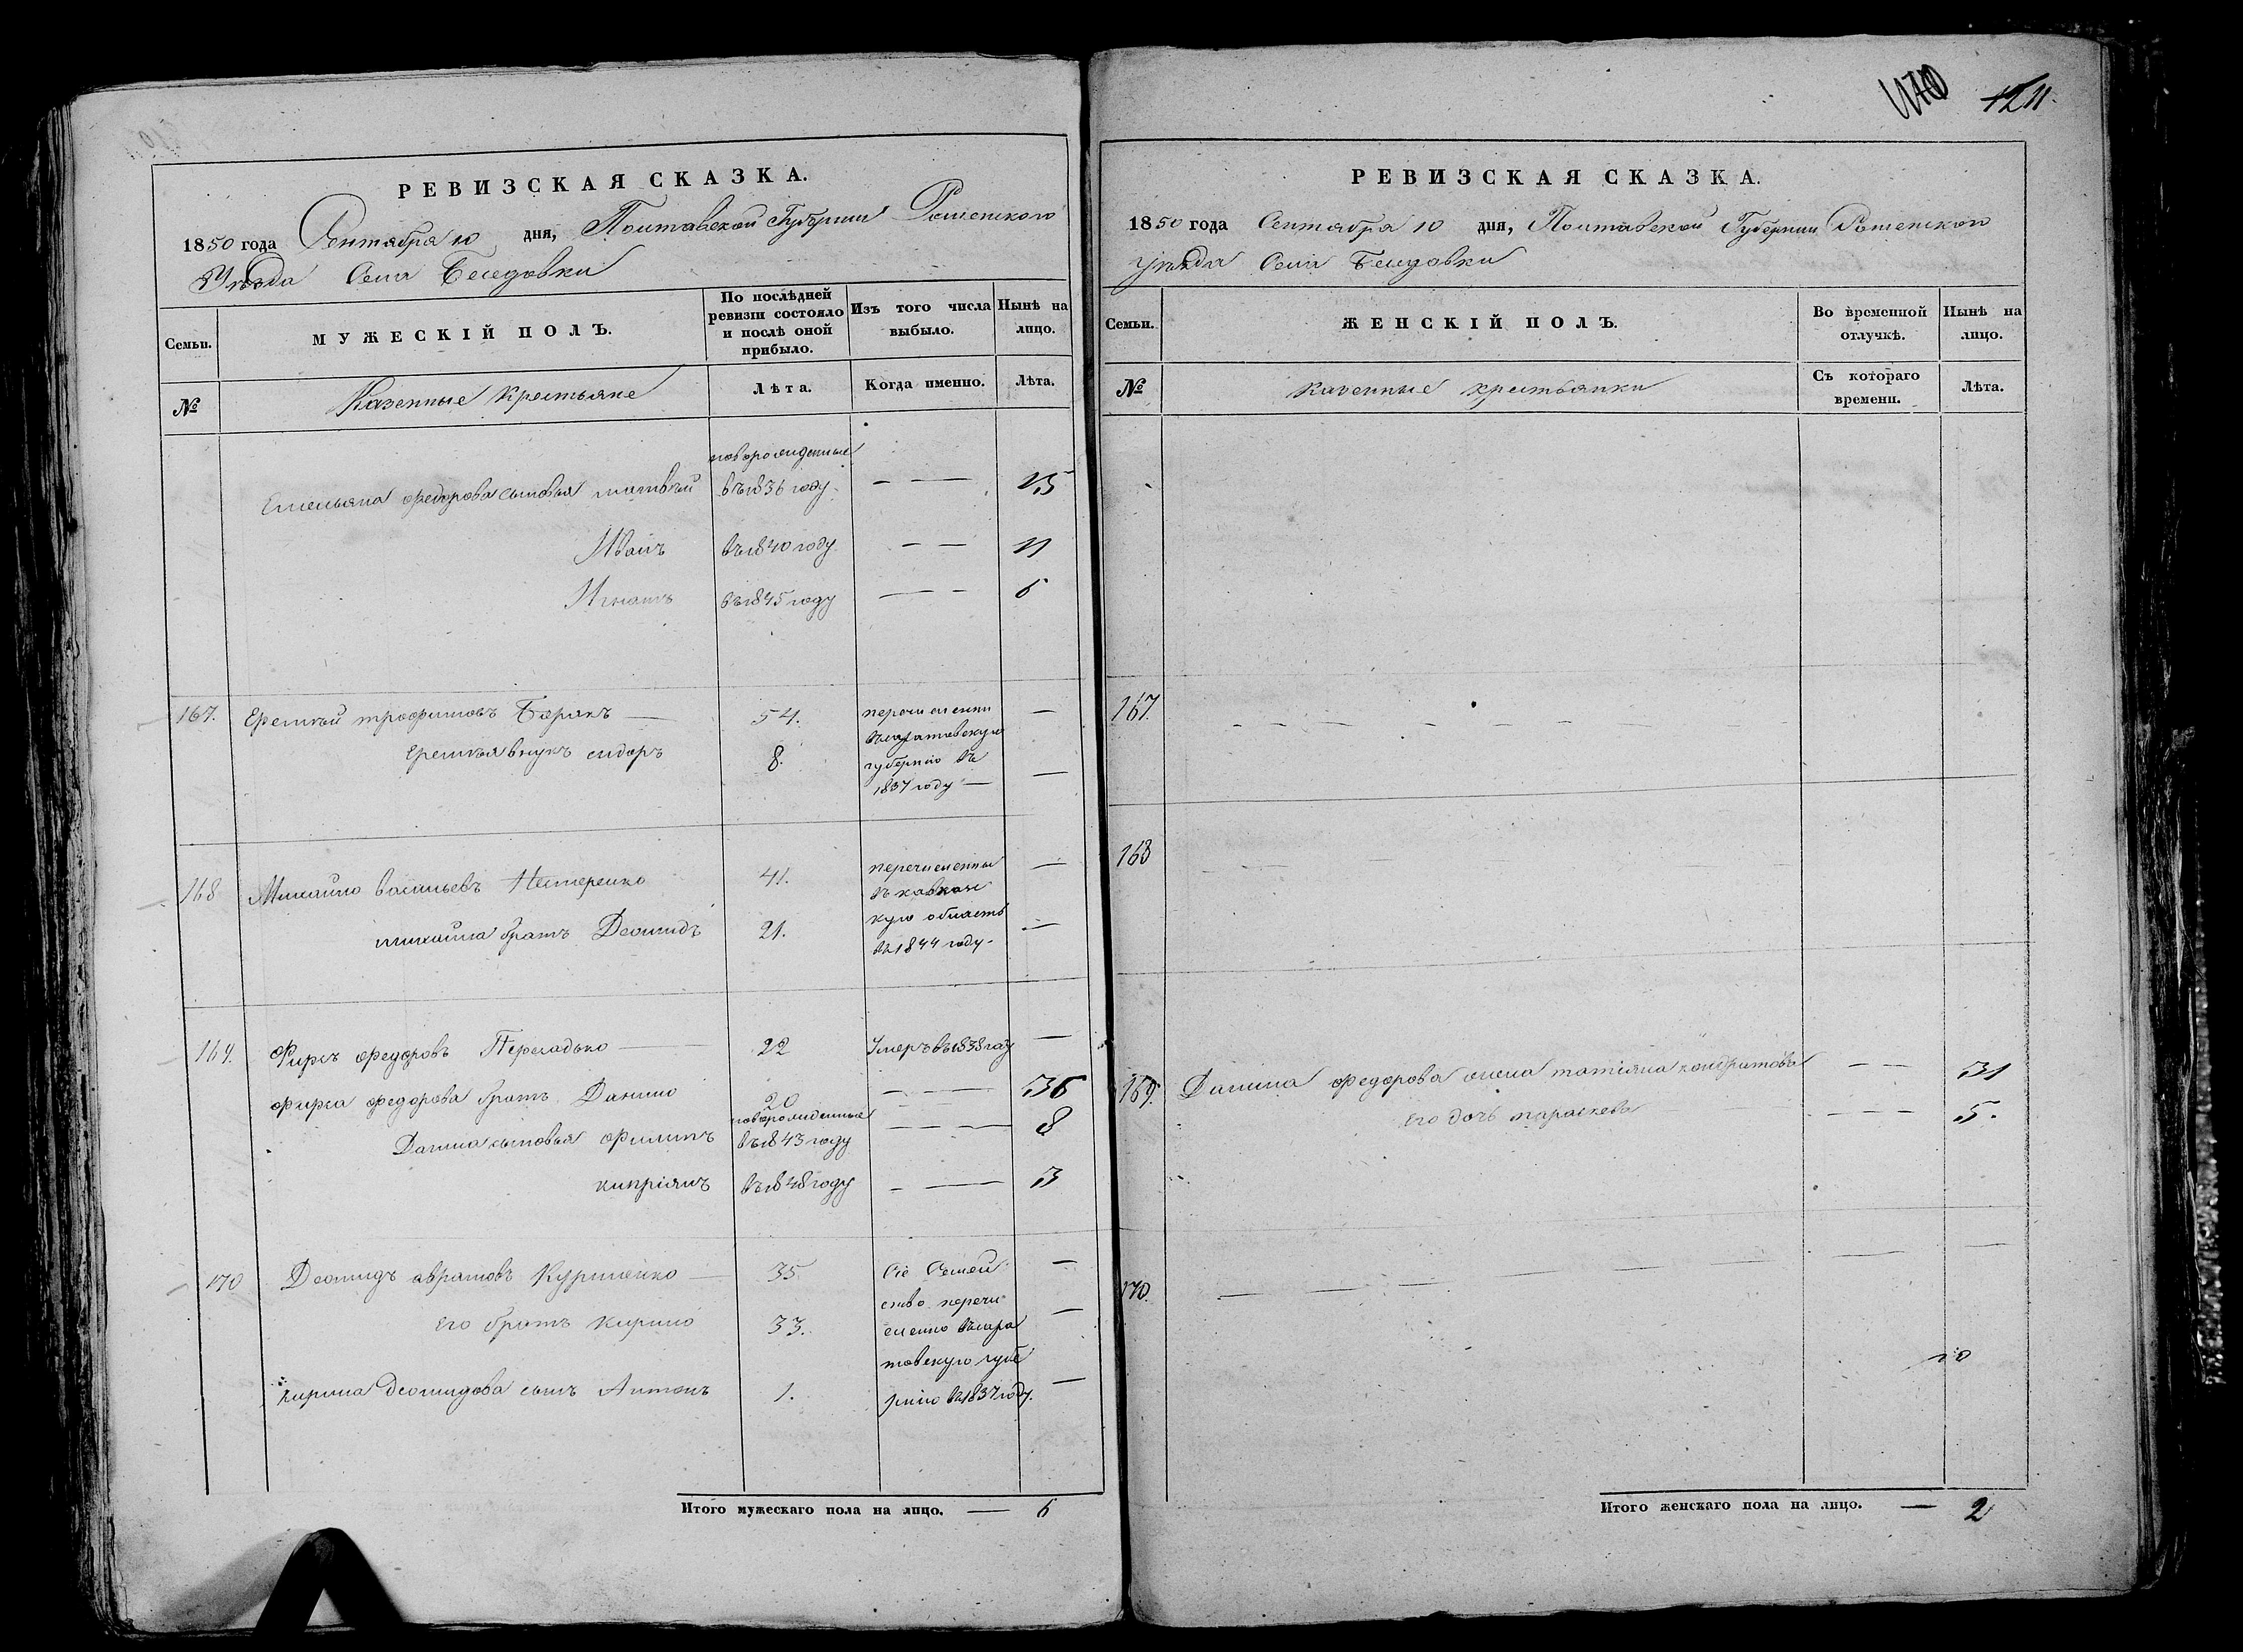 РЕВИЗСКАЯ СКАЗКА.
1850 года Сентября 10 дня, Полтавской Губернии Роменского
Уѣзда Села Беседовки
Семьи.
МУЖЕСКІЙ ПОЛЪ.
По послѣдней ревизіи состояло и послѣ оной прибыло.
Изъ того числа выбыло.
Нынѣ на лицо.
№
Казенные крестьяне
Лѣта.
Когда именно.
Лѣта.
новорожденные
Емельяна Федорова сыновья матвѣй въ 1836 году — — 15
Иванъ въ 1840 году — — 11
Игнатъ въ 1845 году — — 6
167. Еремѣй трофимовъ 54. перечислены —
въ саратовскую
Еремѣя внукъ сидоръ 8. губернію въ —
1837 году —
168 Михайло васильевъ Нестеренко 41. перечислены —
въ кавказс
михайла братъ Деомидъ 21. кую область —
въ 1844 году
169. Фирсъ федоровъ Пересадько — 22 Умеръ въ 1838 году —
фирса федорова братъ Данило 20 — — 36
новорожденные
Данила сыновья филипъ въ 1843 году — — 8
кипріянъ въ 1848 году — — 3
170 Деомидъ аврамовъ — 35. Сіе Семей —
ство перечи
его братъ кирило 33. слено въ сара —
товскую губе
кирила деомидова сынъ Антонъ 1. рнію въ 1837 году. —
Итого мужескаго пола на лицо. — 6
1211
РЕВИЗСКАЯ СКАЗКА.
1850 года Сентября 10 дня, Полтавской Губернии Роменского
Уѣзда Села Беседовки
Семьи.
ЖЕНСКІЙ ПОЛЪ.
Во временной отлучкѣ.
Нынѣ на лицо.
№
казенные крестьянки
Съ котораго времени.
Лѣта.
167.
168
169. Данила федорова жена татіяна кондратова — — 31
его дочь параскева — — — 5.
170.
Итого женскаго пола на лицо. — 2